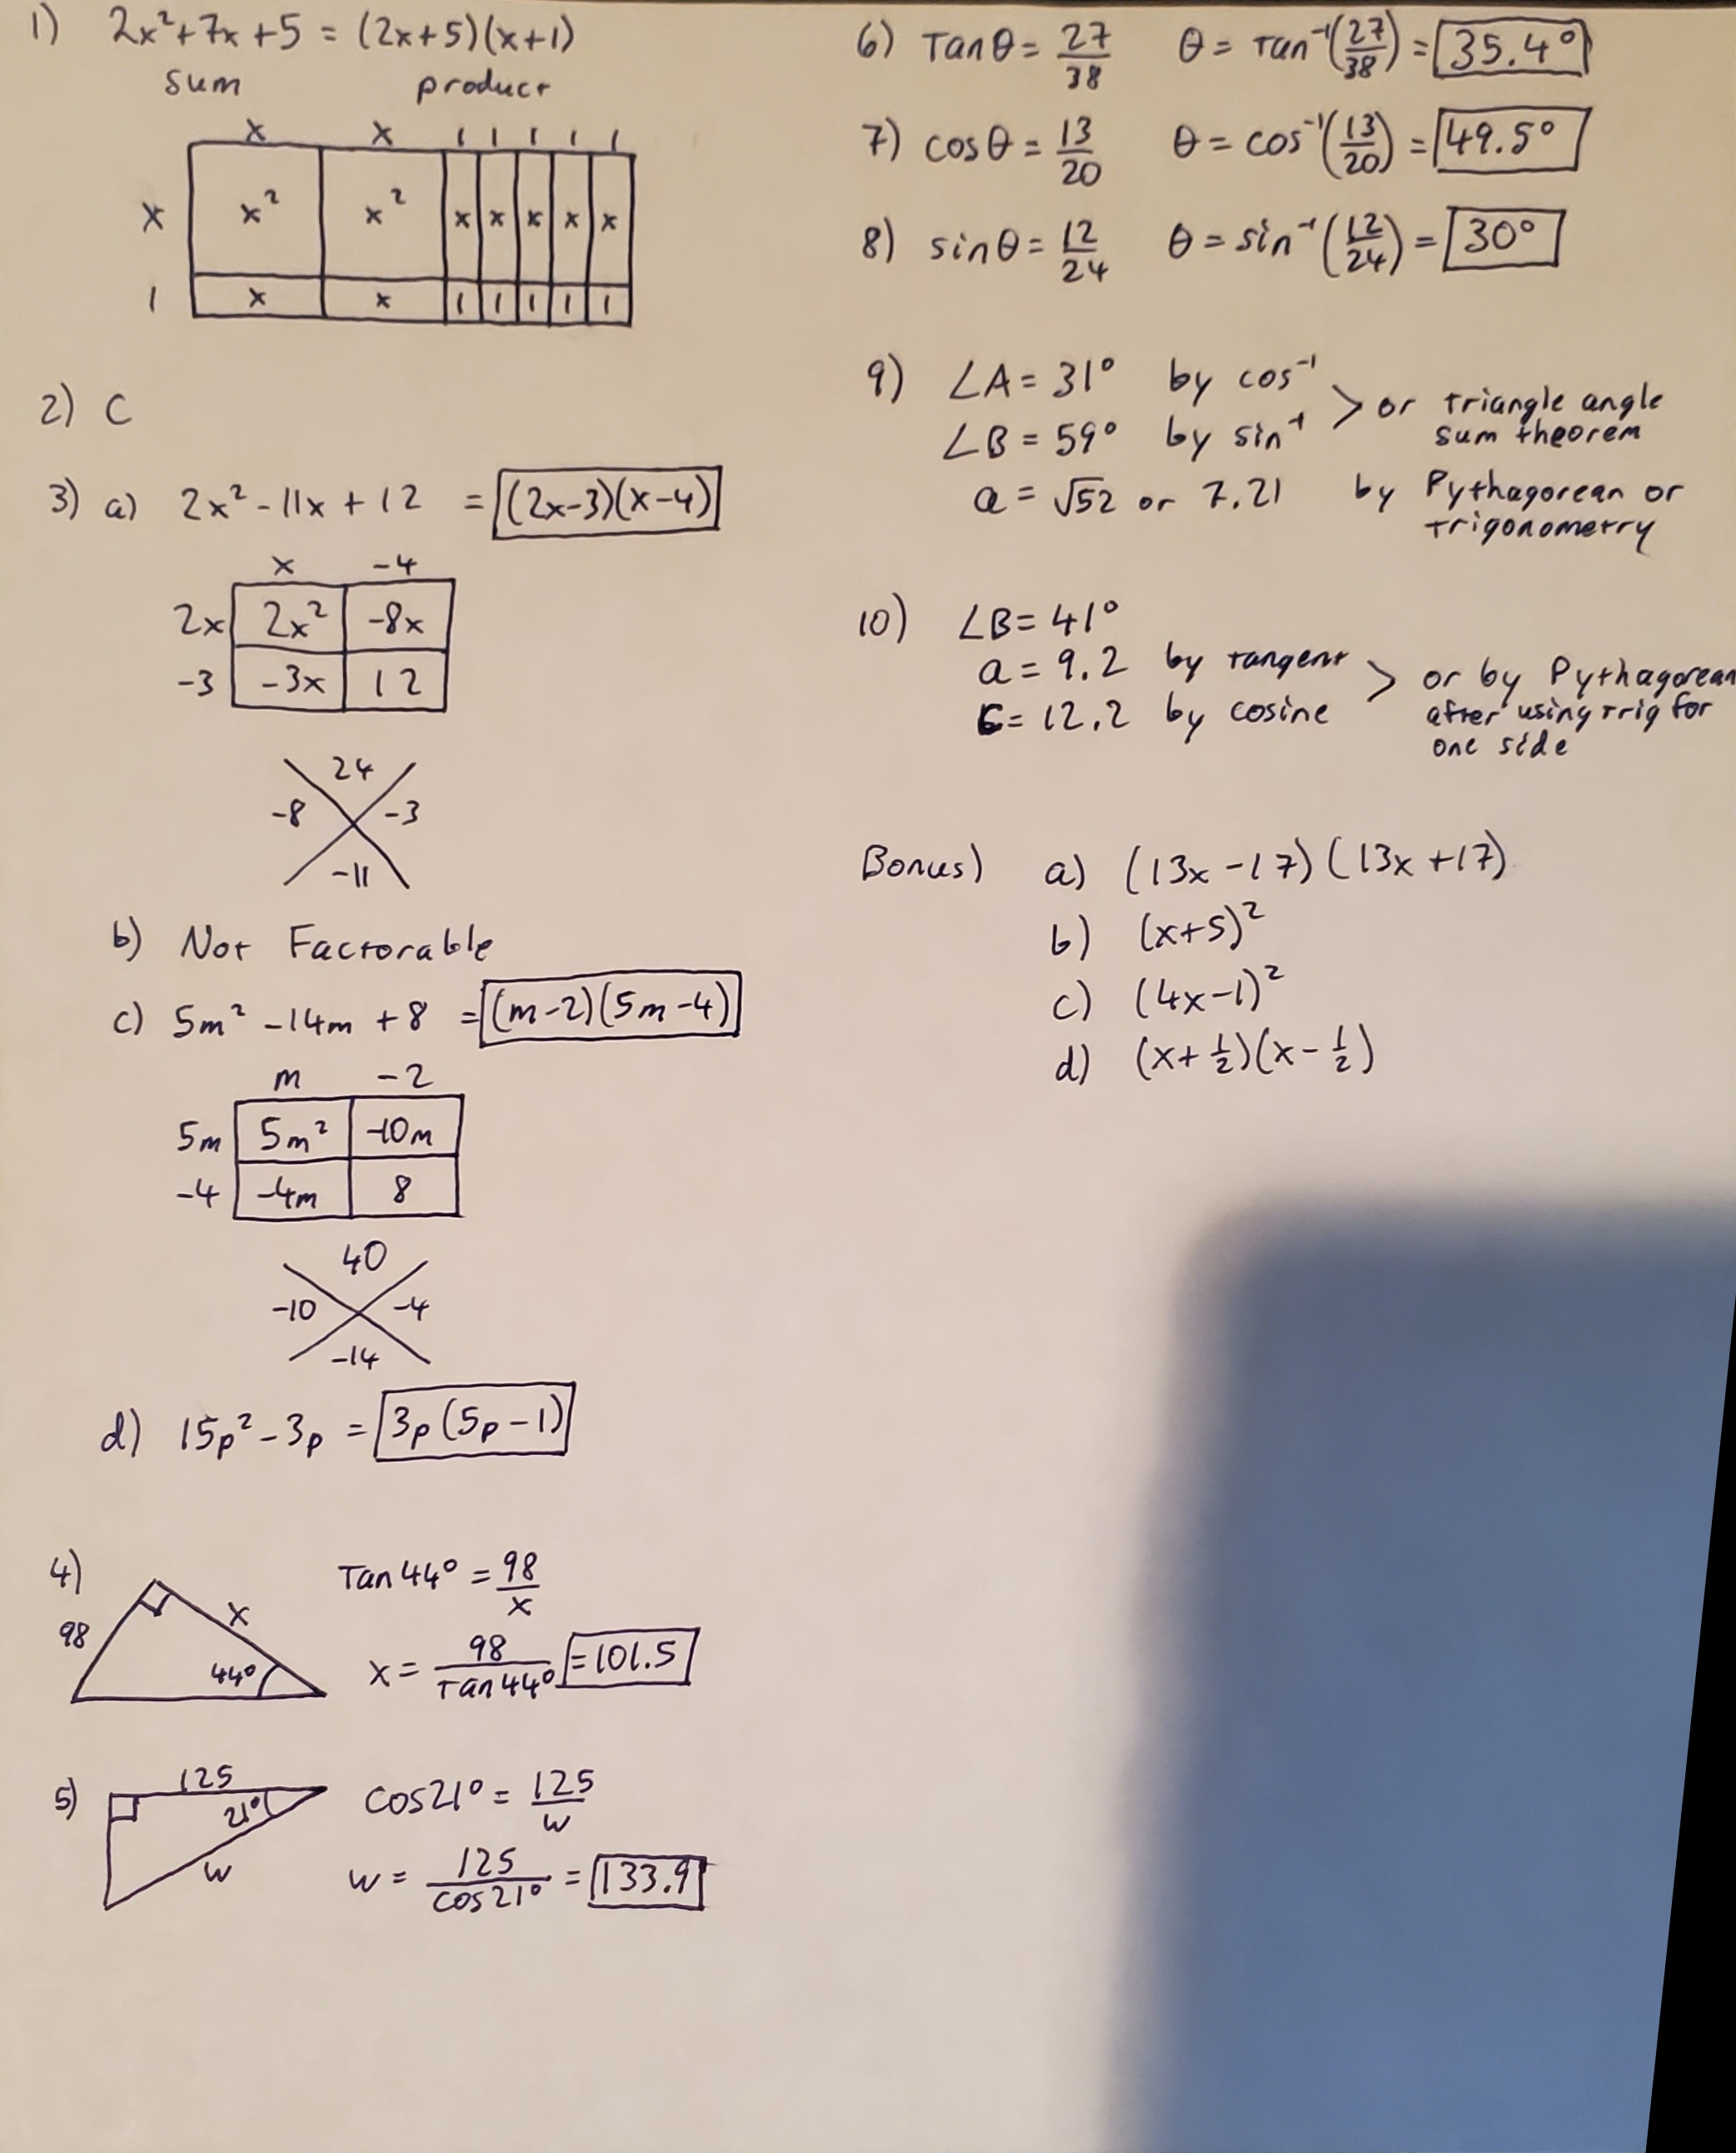 1) 2x²+7x+5 = (2x+5)(x+1)
sum product
x x 1 1 1 1 1
x x² x² x x x x x
1 x x 1 1 1 1 1
2) C
3) a) 2x²-11x+12 = (2x-3)(x-4)
x -4
2x 2x² -8x
-3 -3x 12
24
-8 -3
-11
b) Not Factorable
c) 5m² -14m +8 = (m-2)(5m-4)
m -2
5m 5m² -10m
-4 -4m 8
40
-10 -4
-14
d) 15p²-3p = 3p(5p-1)
4) 98 x 44°
Tan44° = 98/x
x = 98/Tan44° = 101.5
5) 125 21° w
Cos21° = 125/w
w = 125/cos21° = 133.9
6) Tanθ = 27/38 θ = Tan⁻¹(27/38) = 35.4°
7) cosθ = 13/20 θ = cos⁻¹(13/20) = 49.5°
8) sinθ = 12/24 θ = sin⁻¹(12/24) = 30°
9) ∠A = 31° by cos⁻¹
∠B = 59° by sin⁻¹ > or triangle angle
sum theorem
a = √52 or 7.21 by Pythagorean or
trigonometry
10) ∠B = 41°
a = 9.2 by tangent > or by Pythagorean
c = 12.2 by cosine after using trig for
one side
Bonus) a) (13x-17)(13x+17)
b) (x+5)²
c) (4x-1)²
d) (x+½)(x-½)